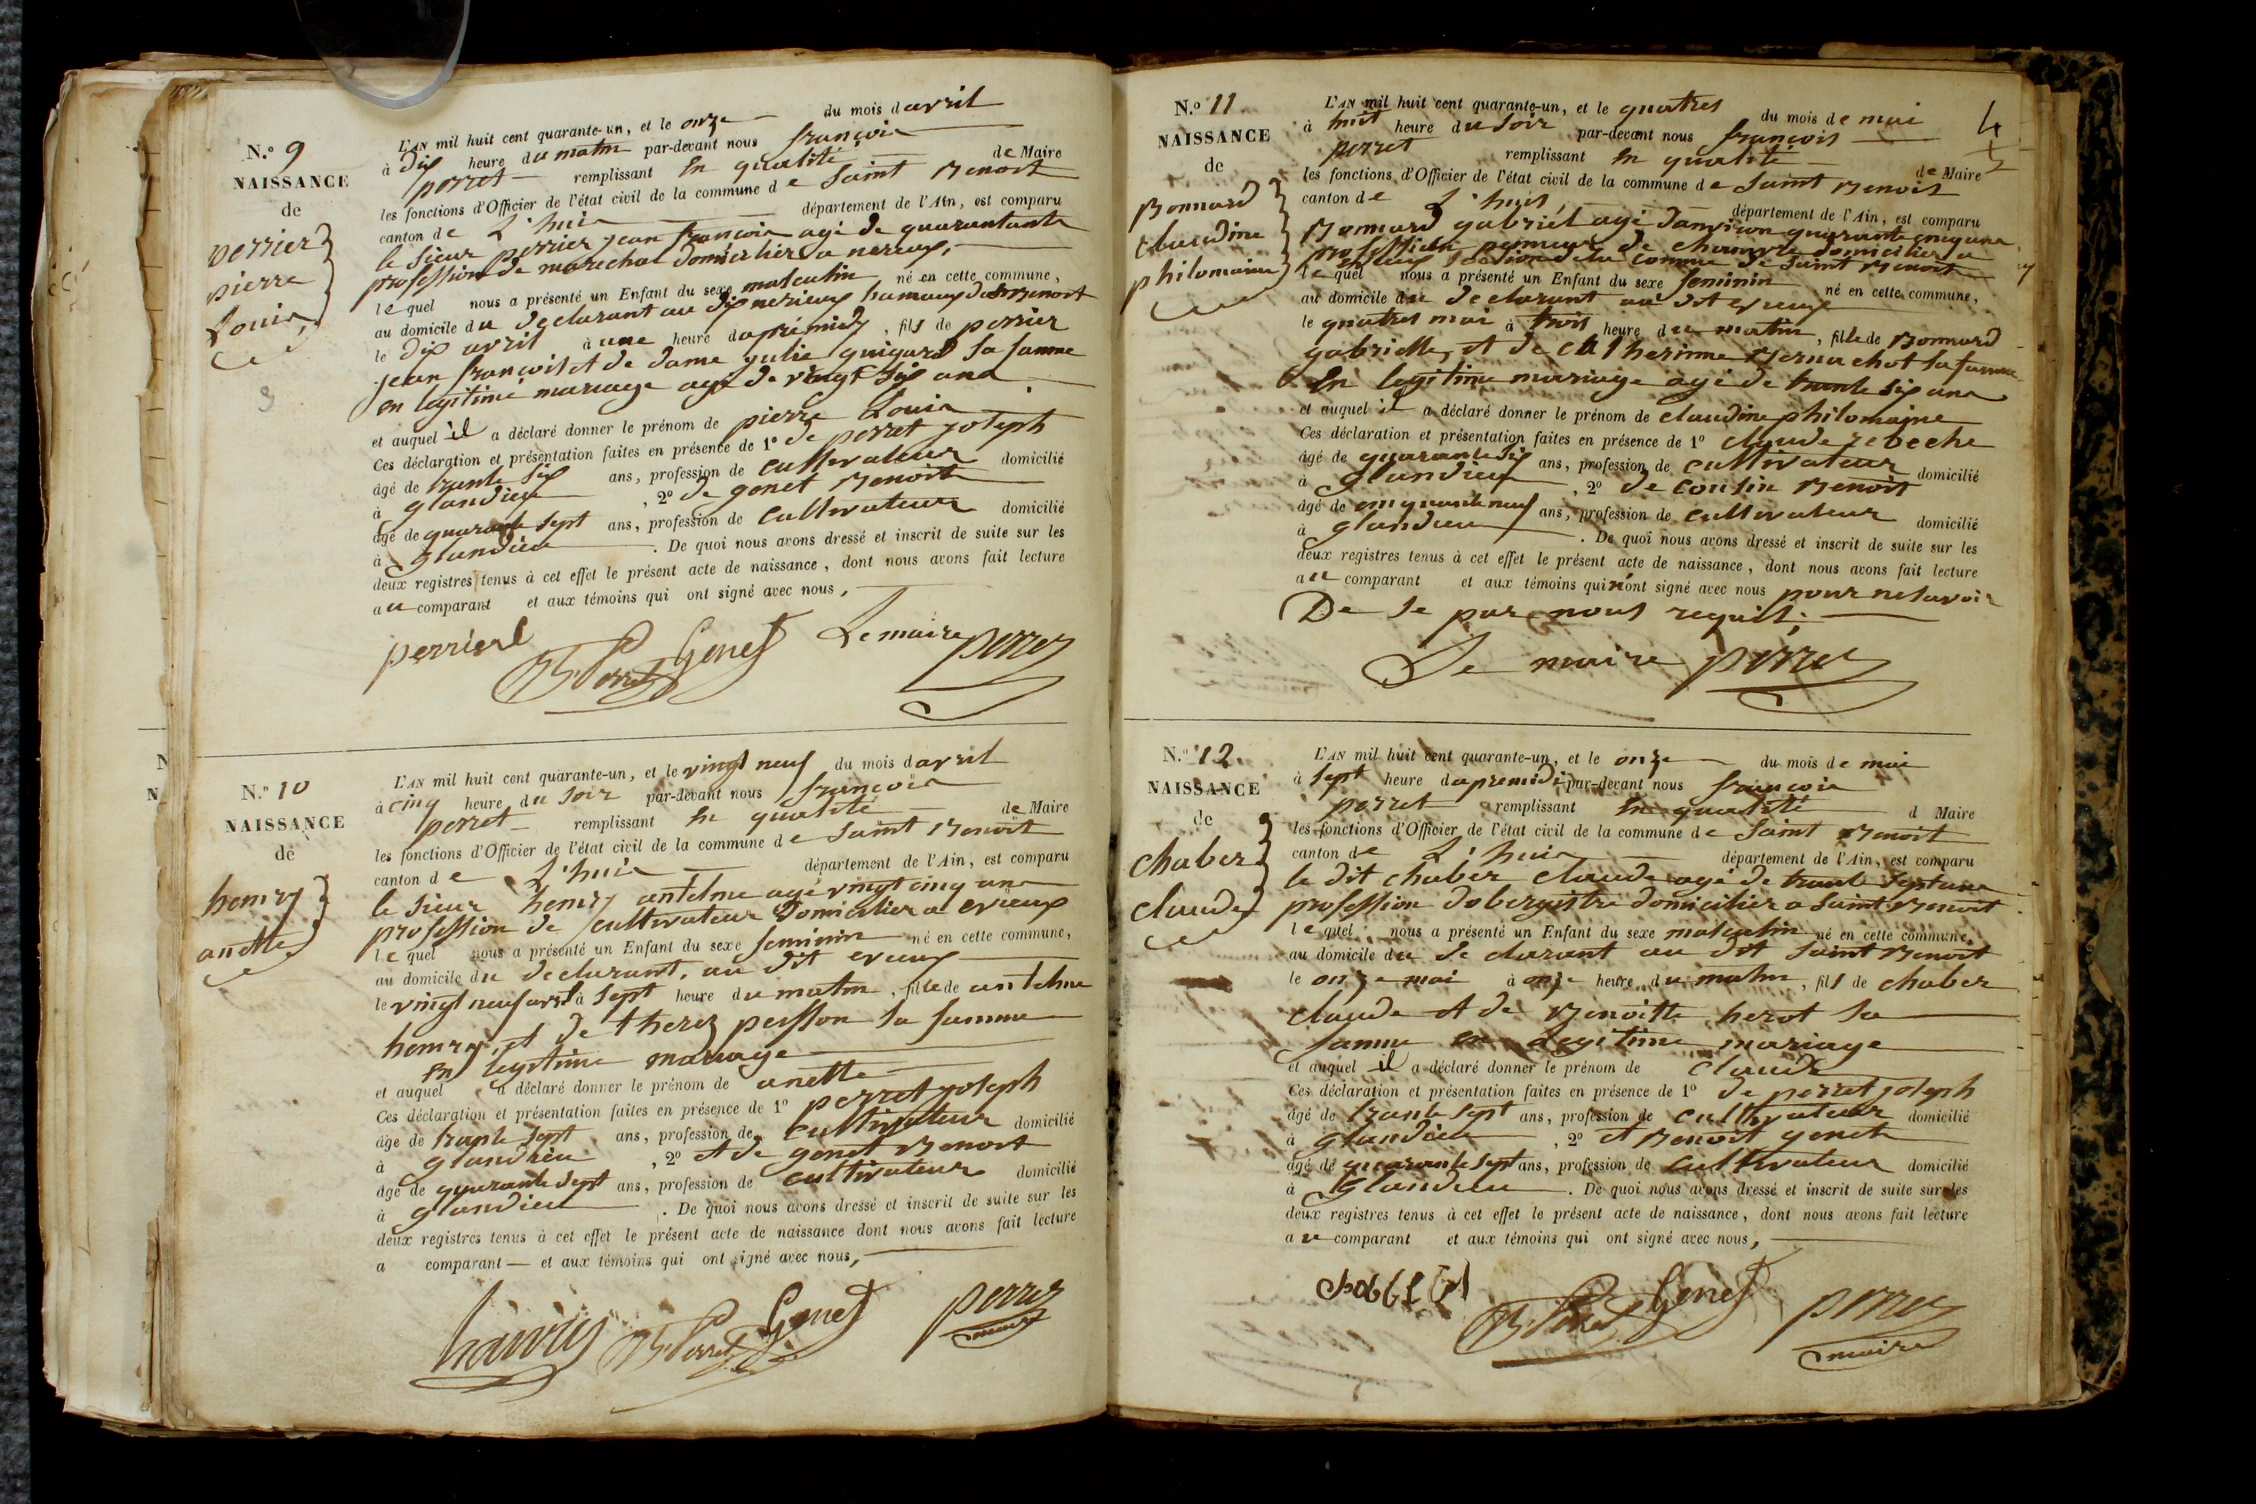 N.º 9
NAISSANCE
de
perrier
pierre
Louis
L'AN mil huit cent quarante-un, et le onze du mois d avril
à dix heure du matin par-devant nous françois
perret remplissant En qualité de Maire
les fonctions d'Officier de l'état civil de la commune de Saint Benoit
canton de L'huis département de l'Ain, est comparu
le sieur perrier jean françois agé de quarantante
profession de marechal domicilier a
lequel nous a présenté un Enfant du sexe masculin né en cette commune,
au domicile du declarant au dit hamaux de St Benoit
le dix avril à une heure d aprémidy, fils de perrier
jean françois et de dame julie guigard sa famme
en legitime mariage agé de vingt six ans
et auquel il a déclaré donner le prénom de pierre Louis
Ces déclaration et présentation faites en présence de 1º de perret joseph
âgé de trante six ans, profession de cultivateur domicilié
à glandieu, 2º de genet Benoit
âgé de quarante sept ans, profession de cultivateur domicilié
à glandieu. De quoi nous avons dressé et inscrit de suite sur les
deux registres tenus à cet effet le présent acte de naissance, dont nous avons fait lecture
au comparant et aux témoins qui ont signé avec nous,
perrier Perret Genet Le maire perret
N.º 10
NAISSANCE
de
henry
anette
L'AN mil huit cent quarante-un, et le vingt neuf du mois d avril
à cinq heure du soir par-devant nous françois
perret remplissant En qualité de Maire
les fonctions d'Officier de l'état civil de la commune de Saint Benoit
canton de L'huis département de l'Ain, est comparu
le sieur henry antelme agé vingt cinq ans
profession de cultivateur Domicilier a evieux
lequel nous a présenté un Enfant du sexe feminin né en cette commune,
au domicile du declarant, au dit evieux
le vingt neuf avril à sept heure du matin, fille de antelme
henry, et de therez peysson sa famme
en legitime mariage
et auquel a déclaré donner le prénom de anette
Ces déclaration et présentation faites en présence de 1º perret joseph
âgé de trante sept ans, profession de cultivateur domicilié
à glandieu, 2º et de genet Benoit
âgé de quarante sept ans, profession de cultivateur domicilié
à glandieu. De quoi nous avons dressé et inscrit de suite sur les
deux registres tenus à cet effet le présent acte de naissance dont nous avons fait lecture
a comparant et aux témoins qui ont signé avec nous,
Perret Genet perret
maire
4
N.º 11
NAISSANCE
de
Bonnard
claudine
philomaine
L'AN mil huit cent quarante-un, et le quatres du mois de mai
à huit heure du soir par-devant nous françois
perret remplissant En qualité de Maire
les fonctions d'Officier de l'état civil de la commune de Saint Benoit
canton de L'huis, département de l'Ain, est comparu
Bonnard gabriel agé danviron quarante cinq ans
profession peigneur de chanvre domicilier a
evieux section de la commune de Saint Benoit
lequel nous a présenté un Enfant du sexe feminin né en cette commune,
au domicile du declarant au dit evieux
le quatres mai à trois heure du matin, fille de Bonnard
gabrielle, et de catherinne Bernachot sa famme
En legitime mariage agé de trante six ans
et auquel il a déclaré donner le prénom de claudine philomaine
Ces déclaration et présentation faites en présence de 1º claude rebeche
âgé de quarante six ans, profession de cultivateur domicilié
à glandieu, 2º de cousin Benoit
âgé de cinquante neuf ans, profession de cultivateur domicilié
à glandieu. De quoi nous avons dressé et inscrit de suite sur les
deux registres tenus à cet effet le présent acte de naissance, dont nous avons fait lecture
au comparant et aux témoins qui n'ont signé avec nous pour ne savoir
De se par nous requit;
Le maire perret
N.º 12
NAISSANCE
de
chaber
claude
L'AN mil huit cent quarante-un, et le onze du mois de mai
à sept heure d apremidi par-devant nous françois
perret remplissant En qualité d Maire
les fonctions d'Officier de l'état civil de la commune de Saint Benoit
canton de L'huis département de l'Ain, est comparu
le dit chaber claude agé de trante sept ans
profession dobergistre domicilier a Saint Benoit
lequel nous a présenté un Enfant du sexe masculin né en cette commune,
au domicile du declarant au dit Saint Benoit
le onze mai à onze heure du matin, fils de chaber
claude et de Benoitte herot sa
famme en legitime mariage
et auquel il a déclaré donner le prénom de claude
Ces déclaration et présentation faites en présence de 1º de perret joseph
âgé de trante sept ans, profession de cultivateur domicilié
à glandieu, 2º et Benoit genet
âgé de quarante sept ans, profession de cultivateur domicilié
à glandieu. De quoi nous avons dressé et inscrit de suite sur les
deux registres tenus à cet effet le présent acte de naissance, dont nous avons fait lecture
au comparant et aux témoins qui ont signé avec nous,
Perret Genet perret
maire